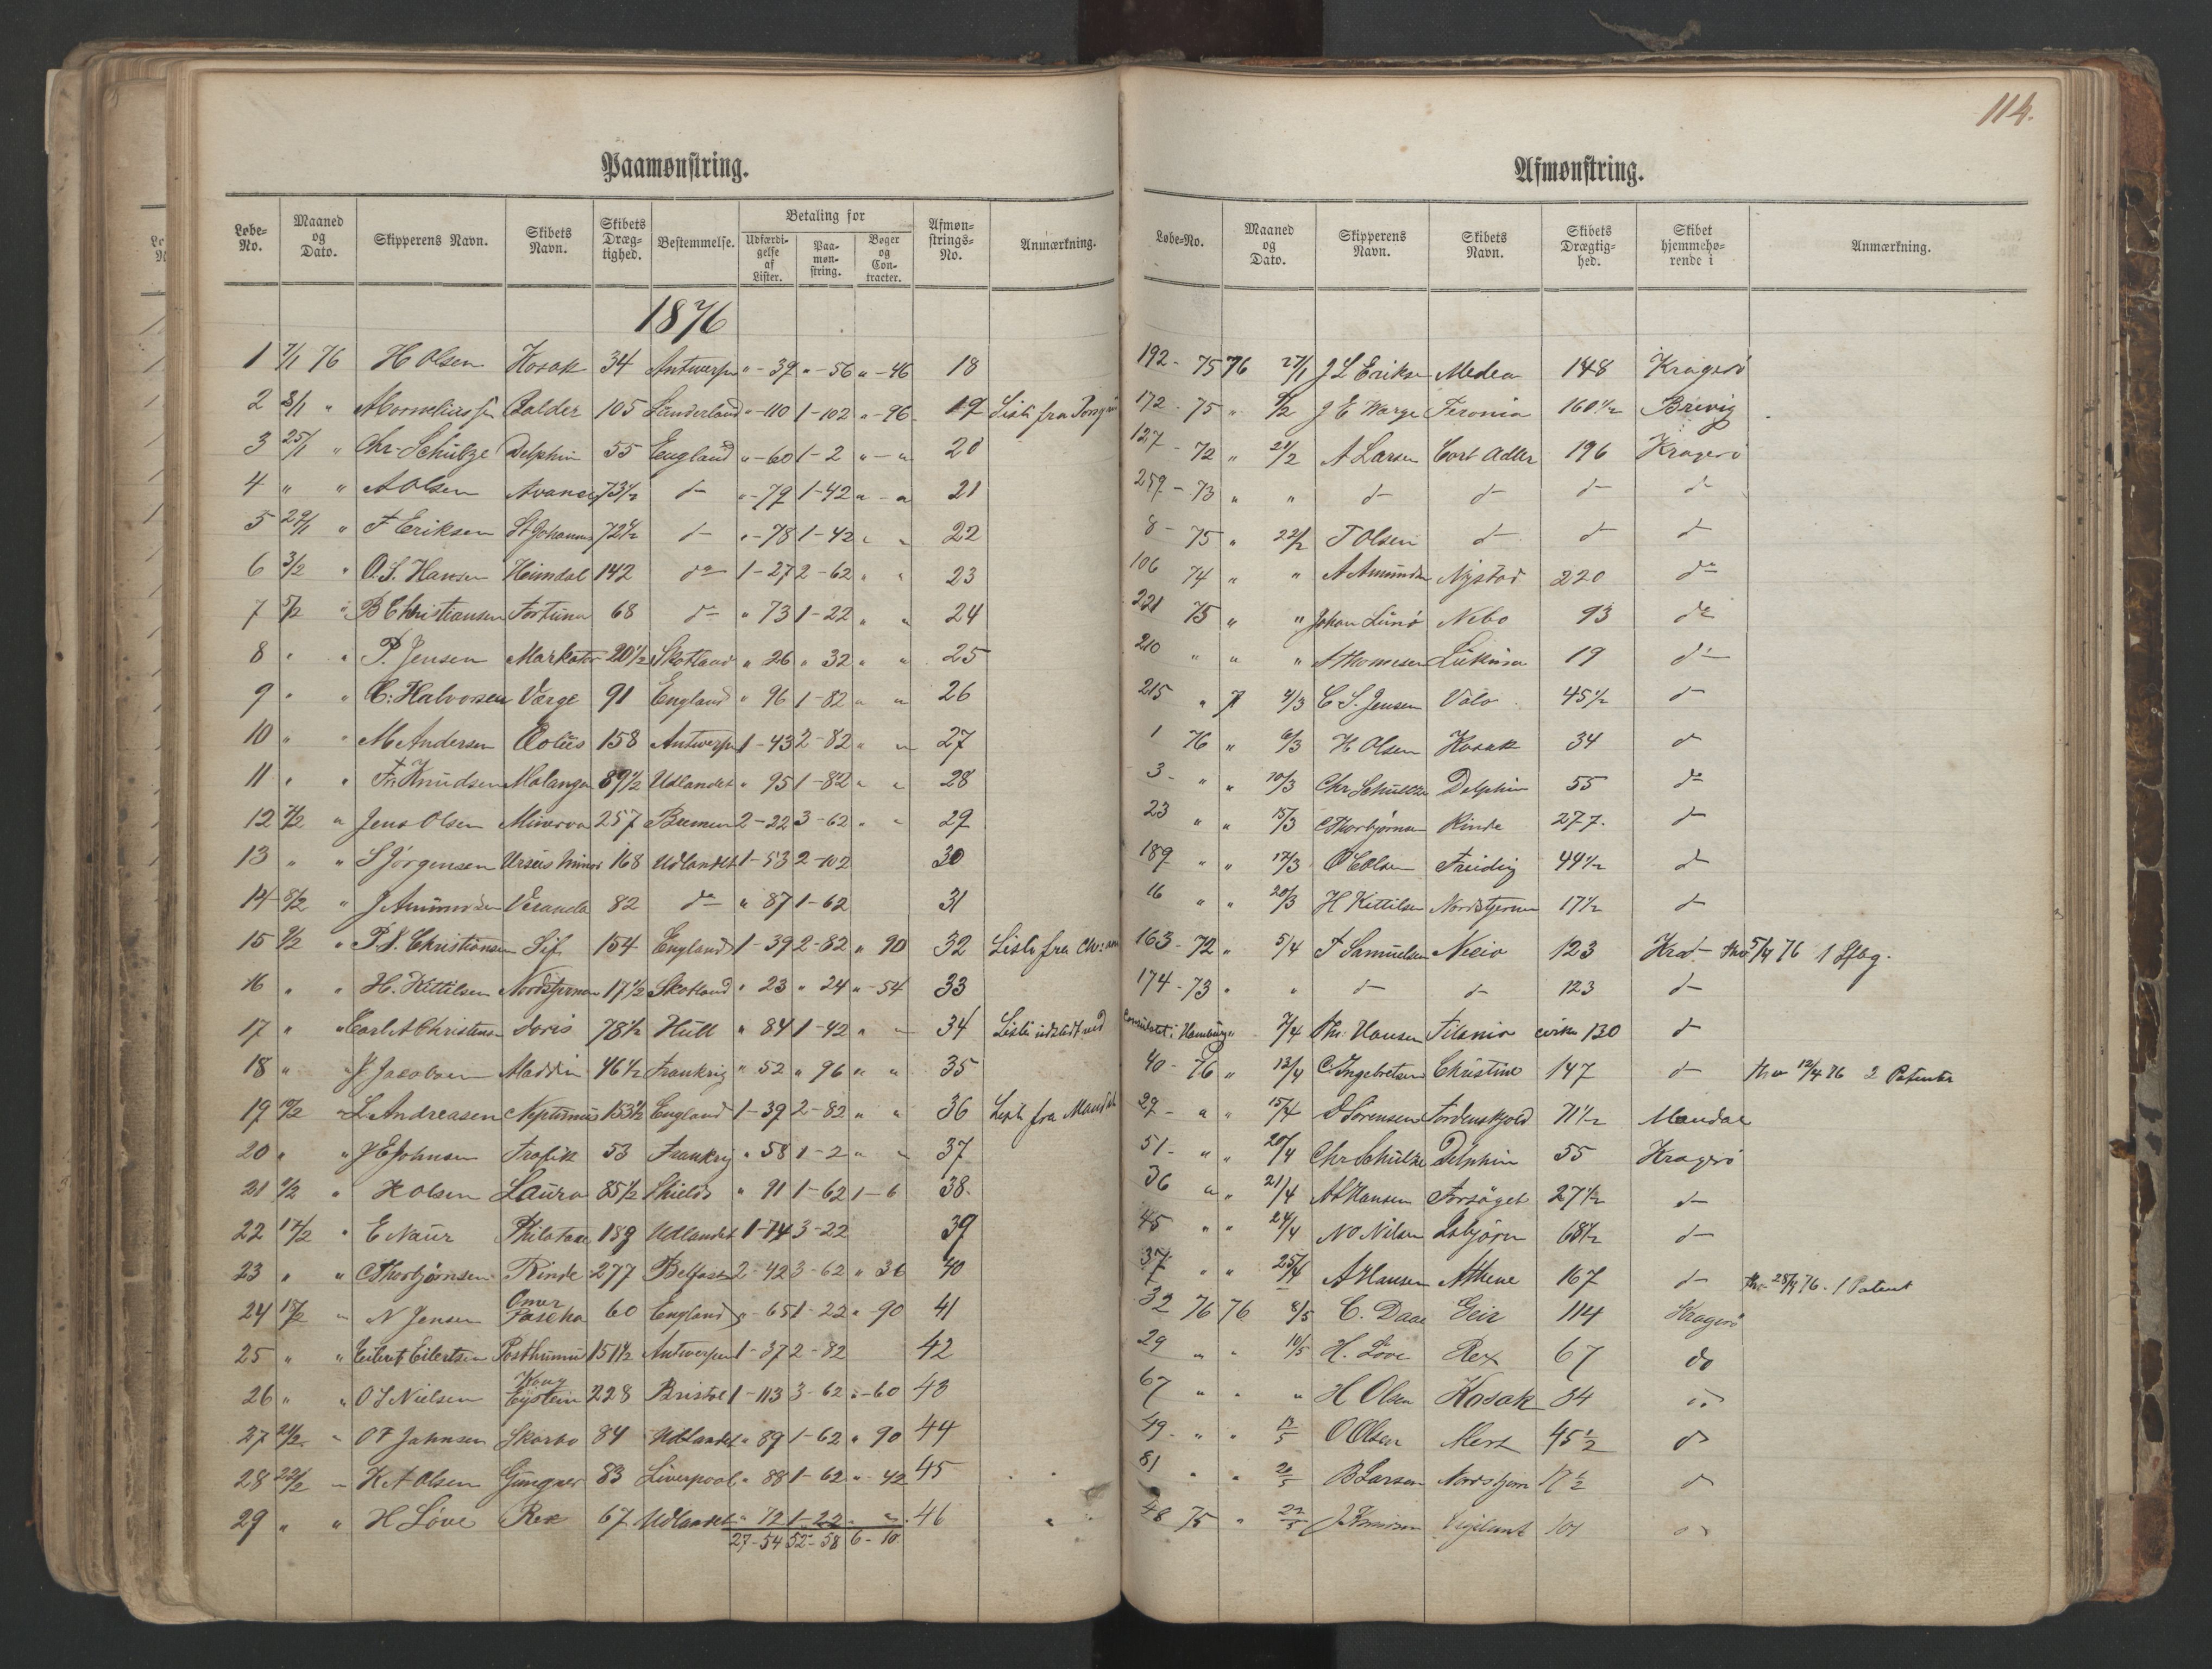 114.
Paamønstring.
Løbe-No. Maaned og Dato. Skipperens Navn. Skibets Navn. Skibets Dræg-tighed. Bestemmelse. Betaling for Udfærdi-gelse af Lister. Paa-møn-string. Bøger og Con-tracter. Afmøn-strings-No. Anmærkning.
1876
1 7/1 76 H Olsen Kosak 34 Antwerpn " - 39 " - 56 " - 46 18
2 8/1 " Balder 105 Sunderland " - 110 1 - 102 " - 96 19 Liste fra
3 25/1 " Chr. Schultze Delphin 55 England " - 60 1 - 2 " - " 20
4 " " A Olsen 73 1/2 d- " - 79 1 - 42 " - " 21
5 29/1 " F Eriksen St Johannes 72 1/2 d- " - 78 1 - 42 " " 22
6 3/2 " O. S. Hansen Heimdal 142 do 1 - 27 2 - 62 " " 23
7 5/2 " B Christiansen Fortuna 68 do " 73 1 - 22 " " 24
8 " " P. Jensen Markator 20 1/2 Skotland " 26 " 32 " " 25
9 " " C. Halvorsen Varge 91 England " 96 1 - 82 " " 26
10 " " M Andersen Eolus 158 Antwerpn 1 - 43 2 - 82 " " 27
11 " " Fr Knudsen Malanga 89 1/2 Udlandet " 95 1 - 82 " " 28
12 7/2 " Jens Olsen Minerva 257 Bremen 2 - 22 3 - 62 " " 29
13 " " S Jörgensen Urseus Minor 168 Udlandet 1 - 53 2 - 102 30
14 8/2 " J Amundsen Veranda 82 do " 87 1 - 62 31
15 9/2 " P. N. Christiansen Sif 154 England 1 - 39 2 - 82 " 90 32 Liste fra
16 " " H. Kittilsen Nordstjernen 17 1/2 Skotland " 23 " 24 " - 54 33
17 " " Carl A Christensen Doris 78 1/2 Hull " 84 1 - 42 " " 34 Liste udstedt ved
18 " " J Jacobsen Aladdin 46 1/2 Frankrig " 52 " 96 " " 35
19 10/2 " L Andreasen Neptunus 153 1/2 England 1 - 39 2 - 82 " " 36 Liste fra Mandal
20 " " J E Johnsen Trafik 53 Frankrig " 58 1 - 2 " " 37
21 " H Olsen Laura 85 1/2 Shields " 91 1 - 62 1 - 6 38.
22 17/2 " E Naur 189 Udlandet 1 - 74 3 - 22 39
23 " " C Thorbjørnsen Rinde 277 Belfast 2 - 42 3 - 62 " 36 40
24 " N Jensen Omer Pascha 60 England " 65 1 - 22 " 90 41
25 " " Eilert Eilertsen Posthumus 151 1/2 Antwerpen 1 - 37 2 - 82 42
26 " " O S Nielsen Kong Eystein 228 Bristol 1 - 113 3 - 62 " - 60 43
27 21/2 " O T Jahnsen Skarbo 84 Udlandet " 89 1 - 62 " 90 44
28 22/2 " K A Olsen Gungner 83 Liverpool " 88 1 - 62 " - 42 45
29 " " H Löve Rex 67 Udlandet " 72 1 - 22 " " 46
27 - 54 52 - 58 6 - 10
Afmønstring.
Løbe-No. Maaned og Dato. Skipperens Navn. Skibets Navn. Skibets Drægtig-hed. Skibet hjemmehø-rende i Anmærkning.
192 - 75 76 27/1 J L Eriksen Medea 148 Kragerö
172 - 75 " J E Warge Feronia 160 1/2 Brevig
127 - 72 " 21/2 A Larsen Cort Adler 196 Kragerö
259 - 73 " " d- d- d- d-
8 - 75 " 22/2 T Olsen d- d- d-
106 74 " " A Amundsen Nystad 220 do
221 75 " " Johan Lunö Nebo 93 do
210 " " " A Thomesen 19 do
215 " " 4/3 C S. Jensen Valo 45 1/2 d-
1 76 " 6/3 H Olsen Kosak 34 d-
3 - " " 10/3 Chr Schultze Delphin 55 do
23 " " 15/3 C Thorbjørnsen Rinde 277. d-
189 " " 17/3 O Olsen 44 1/2 d-
16 " " 20/3 H Kittilsen Nordstjernen 17 1/2 d-
163 - 72 " 5/4 T Samuelsen 123 Kra- 5/4 76
174 - 73 " " d- d- 123 d-
Consulatet i Hamburg 7/4 Hansen Titania cirka 130 d-
40 - 76 " 12/4 C Ingebretsen Christine 147 d- 12/4 76 2 Patenter
29 - " " 15/4 S Sörensen Tordenskjold 71 1/2 Mandal
51 - " " 20/4 Chr Schultze Delphin 55 Kragerö
36 " " 21/4 A Hansen Forsöget 27 1/2 d-
45 " " 24/4 N O Nilsen Isbjörn 68 1/2 d-
37 " " 25/4 A Hansen Athene 167 d- 28/4 76. 1 Patent
32 76 76 8/5 C. Daae Geir 114 Kragerö
29 " " 10/5 H. Löve Rex 67 do
67 " " " H Olsen Kosak 34 do
49 - " " O Olsen Mers 45 1/2 do
81 " " 20/5 B Larsen Nordstjern 17 1/2 do
48 75 " J Knudsen Vigilant 101 do